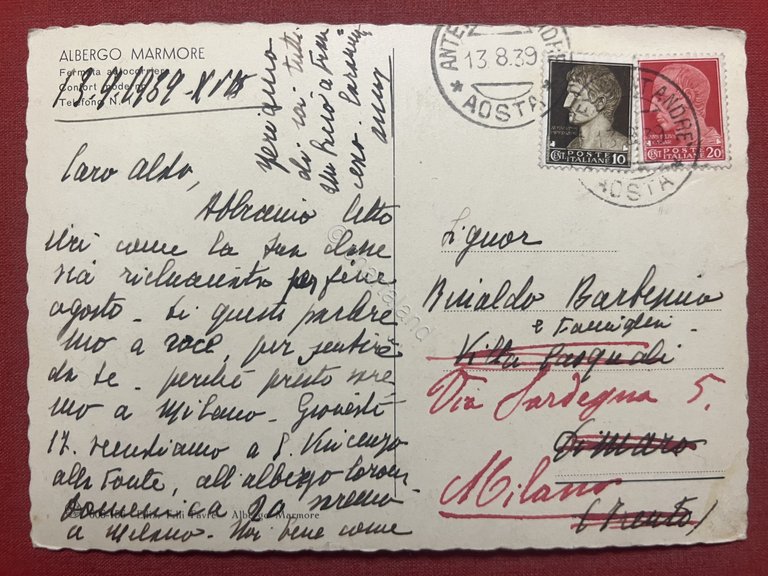 ALBERGO MARMORE
Fermata autocorriere
Confort moderno
Telefono N.
13.8.1939-XVII
Caro Aldo,
Abbiamo letto
ieri come la tua classe
sia richiamata per fine
agosto. Di questo parlere
mo a voce, per sentire
da te. perchè presto sare
mo a Milano. Giovedì
17. scendiamo a S. Vincenzo
alla Fonte, all'albergo
Domenica 20 saremo
a Milano. Noi bene come
speriamo
di voi tutti.
ANTEY ST ANDRE
13 8 39
AOSTA
POSTE
ITALIANE
CENT 10
POSTE
ITALIANE
CENT 20
ST ANDRE
AOSTA
Signor
Rinaldo
e Famiglia
Villa Pasquali
Via Sardegna 5.
Dimaro
Milano
(Trento)
Albergo Marmore